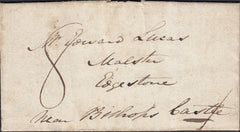 Mr Edward Lucas
8
Malster
Edgestone
near Bishops Castle